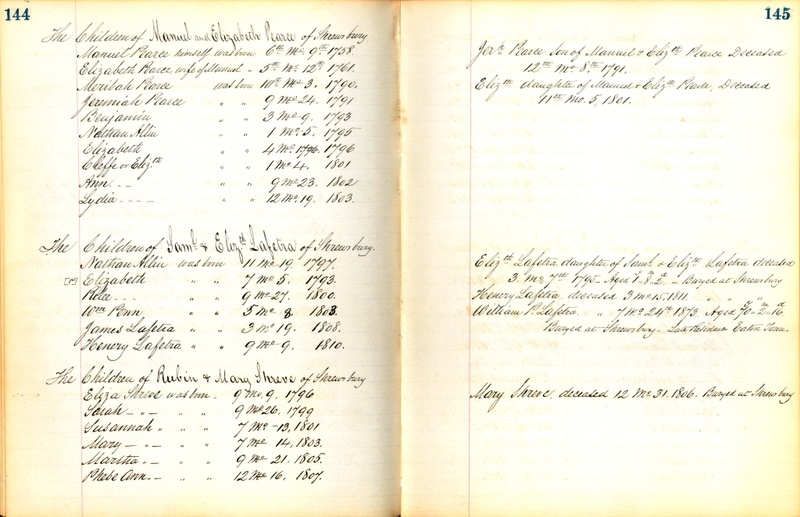 144
The Children of Manuel and Elizabeth Pearce of Shrewsbury
Manuel Pearce himself was born 6th Mo. 9th 1758.
Elizabeth Pearce wife of Manuel " 5th Mo 12th 1761.
Meribah Pearce was born 10th Mo 3. 1790.
Jeremiah Pearce " " 9 Mo 24. 1791
Benjamin " " 3 Mo 9. 1793
Nathan Allin " " 1 Mo 5. 1795
Elizabeth " " 4 Mo 1796. 1796
" " 1 Mo 4. 1801
Ann " " 9 Mo 23. 1802
Lydia " " 12 Mo 19. 1803.
The Children of Saml. & Elizth Lafetra of Shrewsbury.
Nathan Allin was born 11 Mo 19. 1797.
Elizabeth " " 7 Mo 5. 1793.
" " 9 Mo 27. 1800.
Wm Penn " " 5 Mo 8. 1803.
James Lafetra " " 3 Mo 19. 1808.
Henery Lafetra " " 9 Mo 9. 1810.
The Children of Rubin & Mary Shreve of Shrewsbury
Eliza Shreve was born. 9 Mo. 9. 1796
Sarah " " 9 Mo 26. 1799
Susannah " " " 7 Mo 13. 1801
Mary " " " 7 Mo 14. 1803.
Martha " " " 9 Mo 21. 1805.
Phebe Ann " " 12 Mo 16. 1807.
145
Jerh. Pearce Son of Manuel & Elizth Pearce Deceased
12th Mo 8th 1791.
Elizth daughter of Manuel & Elizth Pearce, Deceased
11th Mo. 5. 1801.
Elizth Lafetra daughter of Saml. & Elizth Lafetra deceased
3. Mo 7th 1795 Aged 1 8 2 Buryed at Shrewsbury
Henery Lafetra deceased 3 Mo 15. 1811. " "
William P. Lafetra " 7 Mo 24th 1873 Aged 70 y 2 m 16 d
Buryed at Shrewsbury. Late Residence Eaton Town.
Mary Shreve, deceased 12 Mo 31. 1806. Buryed at Shrewsbury